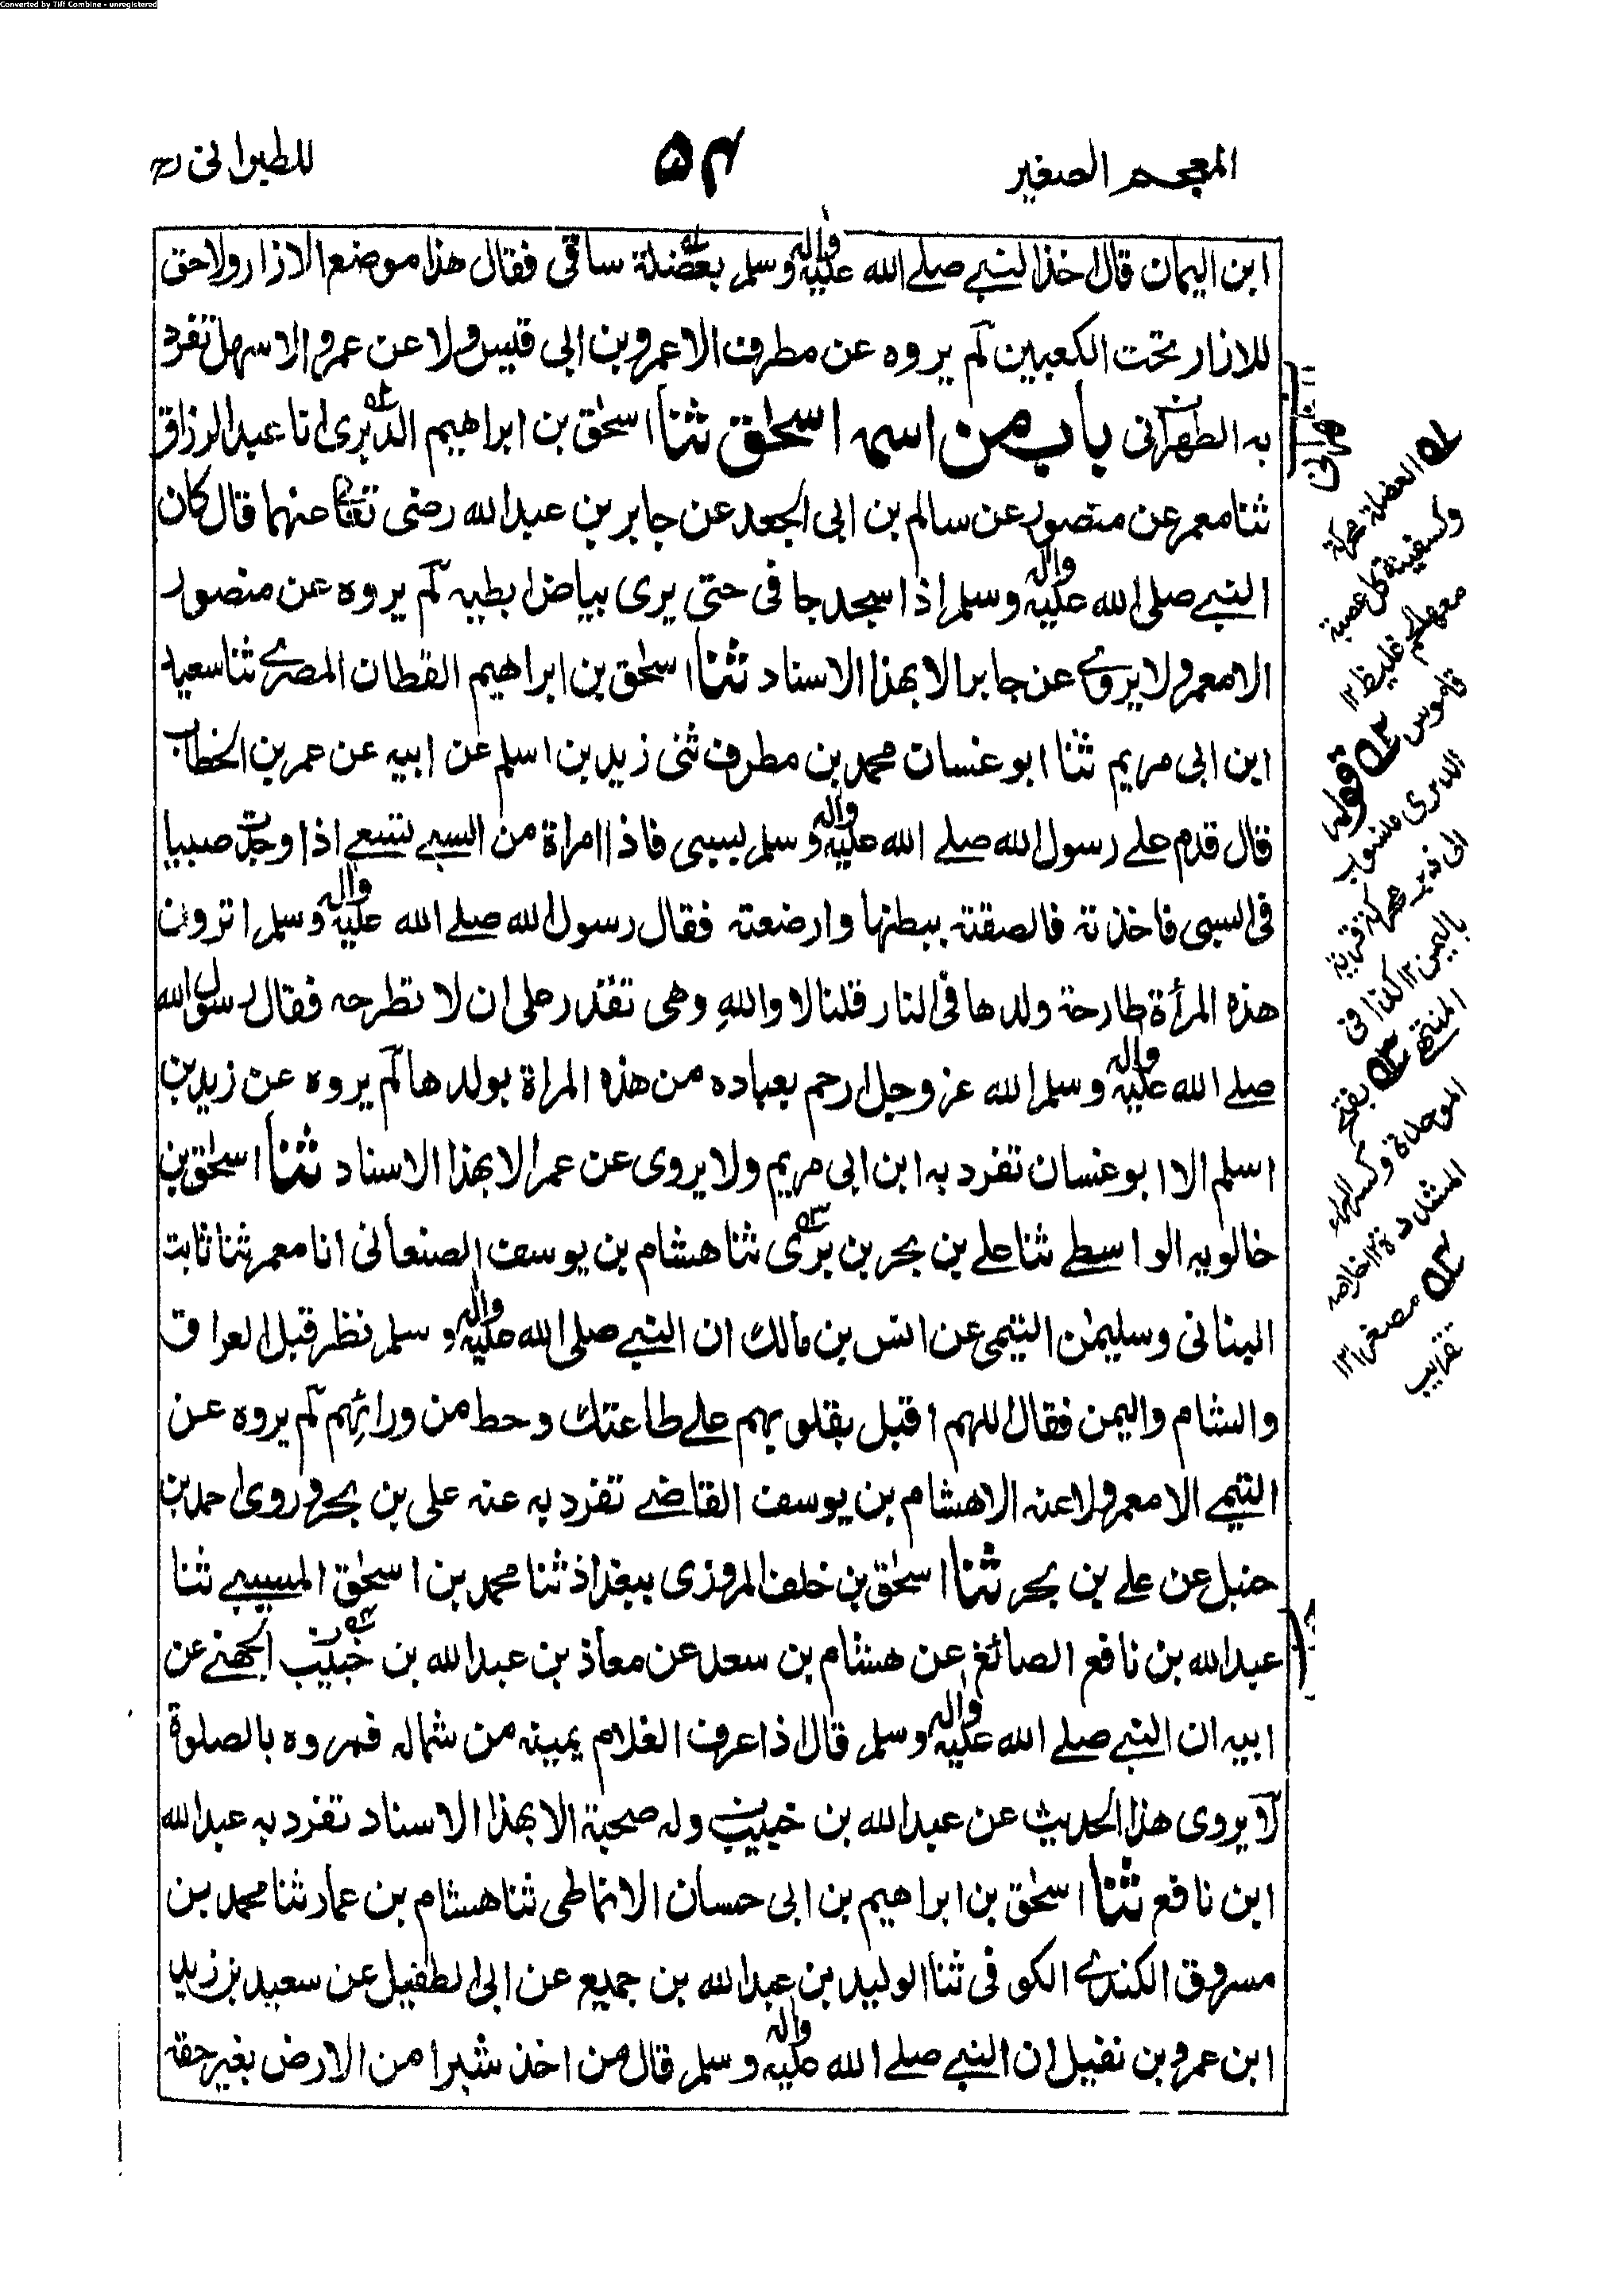 Converted by Tiff Combine - unregistered
المعجم الصغير
٥٤
للطبرانى رح
ابن اليمان قال اخذ النبي صلے الله عليه واله وسلم بعضلة ساقى فقال هذا موضع الازار ولا حق
للازار تحت الكعبين لم يروه عن مطرف الا عمرو بن ابى قيس ولا عن عمرو الا سهل تفرد
به الطهرانى باب من اسمه اسحٰق ثنا اسحٰق بن ابراهيم الدبرى انا عبد الرزاق
ثنا معمر عن منصور عن سالم بن ابى الجعد عن جابر بن عبد الله رضى تعالى عنهما قال كان
النبے صلى الله عليه واله وسلم اذا سجد جافى حتى يرى بياض ابطيه لم يروه عن منصور
الا معمر ولا يروے عن جابر الا بهذا الاسناد ثنا اسحٰق بن ابراهيم القطان المصرے ثنا سعيد
ابن ابى مريم ثنا ابو غسان محمد بن مطرف ثنى زيد بن اسلم عن ابيه عن عمر بن الخطاب
قال قدم علے رسول الله صلے الله عليه واله وسلم بسبى فاذا امراة من السبے تسعے اذا وجدت صبيا
فى السبى فاخذته فالصقته ببطنها وارضعته فقال رسول الله صلے الله عليه واله وسلم اترون
هذه المرأة طارحة ولدها فى النار قلنا لا واللهِ وهى تقدر على ان لا تطرحه فقال رسول الله
صلے الله عليه واله وسلم الله عز وجل ارحم بعباده من هذه المراة بولدها لم يروه عن زيد بن
اسلم الا ابو غسان تفرد به ابن ابى مريم ولا يروى عن عمر الا بهذا الاسناد ثنا اسحٰق بن
خالويه الواسطے ثنا علے بن بحر بن برى ثنا هشام بن يوسف الصنعانى انا معمر ثنا ثابت
البنانى وسليمٰن التيمى عن انس بن مالك ان النبے صلى الله عليه واله وسلم نظر قبل العراق
والشام واليمن فقال اللهم اقبل بقلوبهم علے طاعتك وحط من ورائهم لم يروه عن
التيمے الا معمر ولا عنه الا هشام بن يوسف القاضے تفرد به عنه على بن بحر وروى احمد بن
حنبل عن علے بن بحر ثنا اسحٰق بن خلف المروزى ببغداذ ثنا محمد بن اسحٰق المسيبے ثنا
عبد الله بن نافع الصائغ عن هشام بن سعد عن معاذ بن عبد الله بن خبيب الجهنے عن
ابيه ان النبے صلے الله عليه واله وسلم قال اذا عرف الغلام يمينه من شماله فمروه بالصلوة
لا يروى هذا الحديث عن عبد الله بن خبيب وله صحبة الا بهذا الاسناد تفرد به عبد الله
ابن نافع ثنا اسحٰق بن ابراهيم بن ابى حسان الانماطى ثنا هشام بن عمار ثنا محمد بن
مسروق الكندے الكوفى ثنا الوليد بن عبد الله بن جميع عن ابى الطفيل عن سعيد بن زيد
ابن عمرو بن نفيل ان النبے صلے الله عليه واله وسلم قال من اخذ شبرا من الارض بغير حقه
العضلة محركة
وكسفينة كل عصبة
معها لحم غليظ ١٢
قاموس قوله
الدبرى منسوب
الى دبر محركة قرية
باليمن ١٢ كذا فى
المنتهے بفتح
الموحدة وكسر الراء
المشددة ١٢ خلاصه
مصغرا ١٢
تقريب